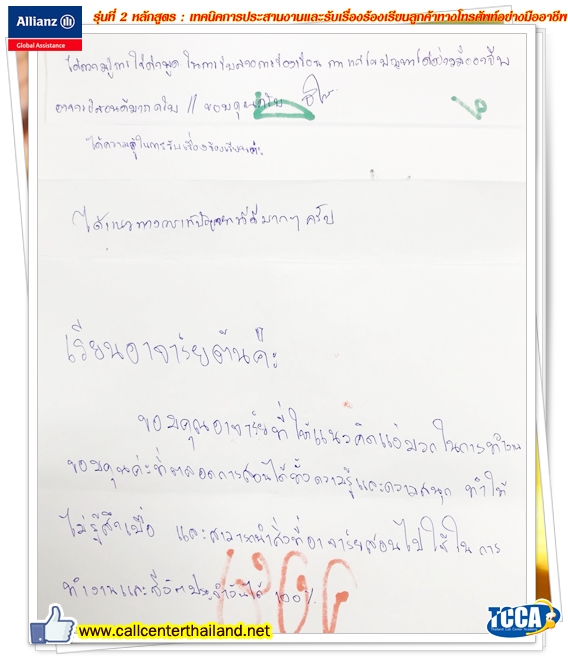 Allianz
Global Assistance
รุ่นที่ 2 หลักสูตร : เทคนิคการประสานงานและรับเรื่องร้องเรียนลูกค้าทางโทรศัพท์อย่างมืออาชีพ
ได้ความรู้การใช้คำพูด ในการรับสายการร้องเรียน
อาจารย์สอนดีมากครับ // ขอบคุณครับ
ได้ความรู้ในการรับเรื่องร้องเรียนค่ะ
ได้แนวทางการแก้ปัญหาที่ดีมากๆ ครับ
เรียนอาจารย์ต้นค่ะ
ขอบคุณอาจารย์ที่ให้แนวคิดแง่บวกในการทำงาน
ขอบคุณค่ะที่ตลอดการสอนได้ทั้งความรู้และความสนุก ทำให้
ไม่รู้สึกเบื่อ และสามารถนำสิ่งที่อาจารย์สอนไปใช้ใน การ
ทำงานและชีวิตประจำวันได้ 100%
www.callcenterthailand.net
TCCA